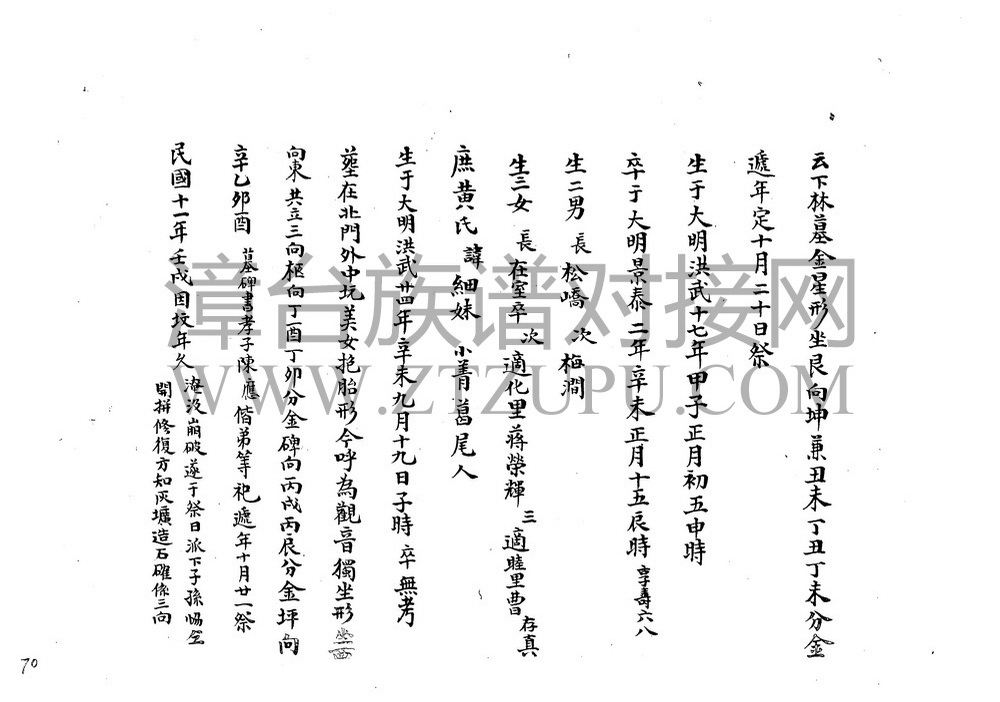 云下林墓金星形坐艮向坤兼丑未丁丑丁未分金
遞年定十月二十日祭
生于大明洪武十七年甲子正月初五申時
卒于大明景泰二年辛未正月十五辰時 享壽六八
生二男 長松嶠 次梅澗
生三女 長在室卒 次適化里蔣榮輝 三適睦里曹存真
庶黃氏諱細妹 小菁葛尾人
生于大明洪武廿四年辛未九月十九日子時 卒無考
塟在北門外中坑美女抱胎形今呼為觀音獨坐形坐西
向東共立三向柩向丁酉丁卯分金碑向丙戌丙辰分金坪向
辛乙卯酉 墓碑書孝子陳應偕弟等祀遞年十月廿一祭
民國十一年壬戌因坟年久淹沒崩破遂于祭日派下子孫協仝
開拼修復方知灰壙造石確係三向
70
漳台族谱对接网
WWW.ZTZUPU.COM